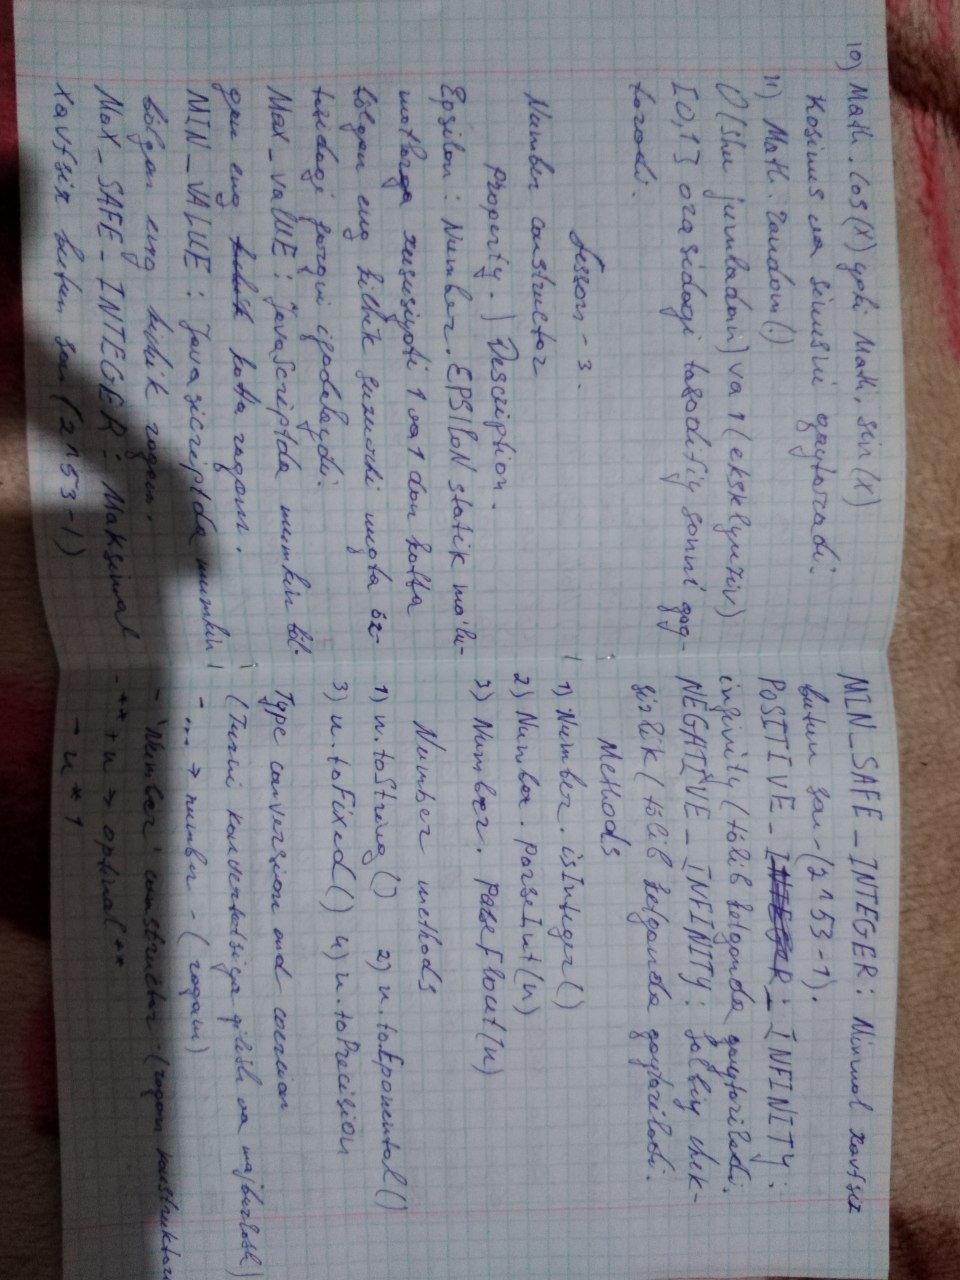 10) Math. cos(x) yoki Math, sin(x)
Kosinus va sinusni qaytaradi.
11) Math. random()
0(Shu jumladan) va 1(eksklyuziv)
[0,1] orasidagi tasodifiy sonni qay-
taradi.
Lesson-3.
Number constructor
Property.) Description.
Epsilon: Number.EPSILON statik ma'lu-
motlarga xususiyati 1 va 1 dan katta
bo'lgan eng kichik suzuvchi nuqta
tasidagi farqni ifodalaydi.
Max_vallUE: javaScriptda mumkin bo'l-
gan eng katta raqam.
MIN_VALUE: Java sicriptda mumkin
bo'lgan eng kichik raqam.
MaX_SAFE-INTEGER: Maksimal
xavfsiz butun son (2^53-1)
MIN_SAFE_INTEGER: Minmal xavfsiz
butun son-(2^53-1).
POSITIVE_INFINITY:
infinity (to'lib ketganda qaytariladi.
NEGATIVE_INFINITY: Salbiy chek-
sizlik (to'lib ketganda qaytariladi.
Methods
1) Number.isInteger()
2) Number. ParseInt(n)
Number methods
1) n.toString() 2) n.toEponental()
3) n.toFixed() 4) n.toPrecision
Type conversion and coercion
(Turni konvertatsiya qilish va majburlash)
- ... → number - (raqam)
- 'Number' constructor -(raqam
- ** + n → optimal **
- n * 1